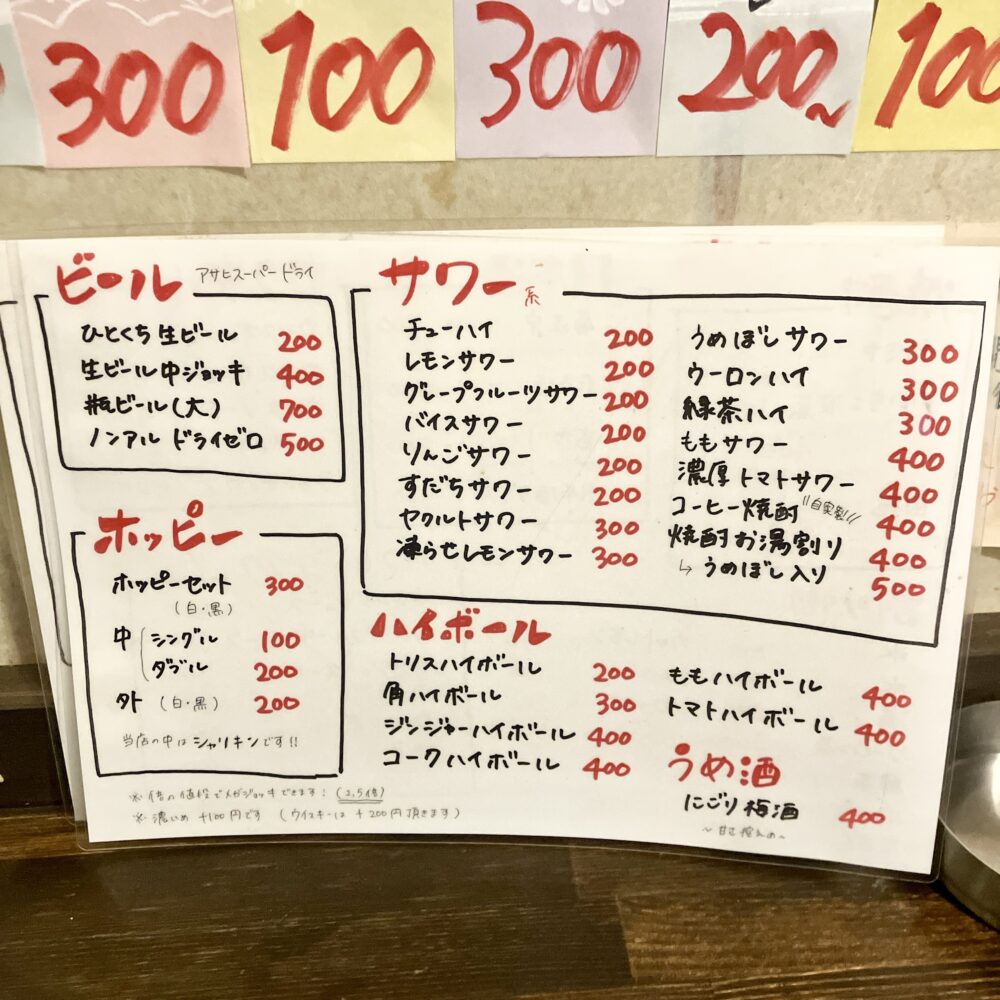 300 100 300 200~ 100
ビール アサヒスーパードライ
ひとくち生ビール 200
生ビール中ジョッキ 400
瓶ビール(大) 700
ノンアル ドライゼロ 500
ホッピー
ホッピーセット 300
(白・黒)
中 シングル 100
ダブル 200
外 (白・黒) 200
当店の中はシャリキンです!!
サワー系
チューハイ 200
レモンサワー 200
グレープフルーツサワー 200
バイスサワー 200
りんごサワー 200
すだちサワー 200
ヤクルトサワー 300
凍らせレモンサワー 300
うめぼしサワー 300
ウーロンハイ 300
緑茶ハイ 300
ももサワー 400
濃厚トマトサワー 400
コーヒー焼酎 "自家製" 400
焼酎お湯割り 400
↳ うめぼし入り 500
ハイボール
トリスハイボール 200
角ハイボール 300
ジンジャーハイボール 400
コークハイボール 400
ももハイボール 400
トマトハイボール 400
うめ酒
にごり梅酒 400
~甘さ控えめ~
※倍の値段でメガジョッキできます!(2.5倍)
※濃いめ +100円です (ウイスキーは +200円頂きます)